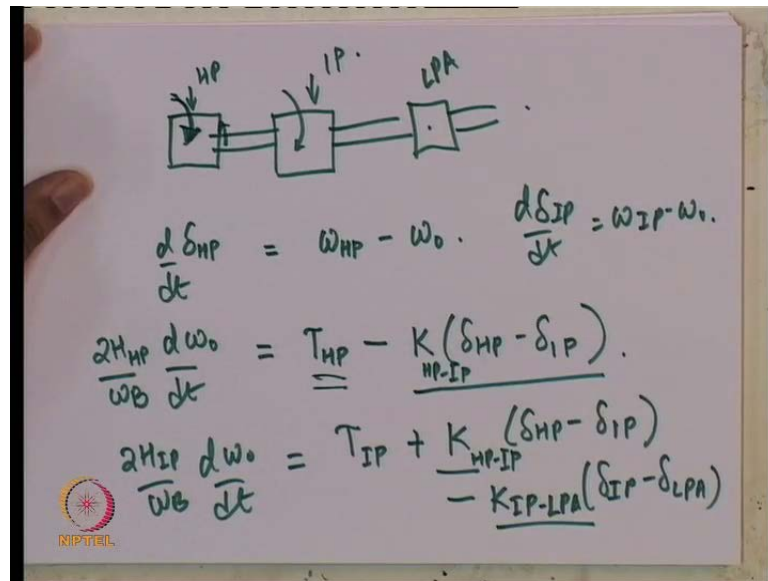 HP IP. LPA
d δHP / dt = ωHP - ω0. dδIP / dt = ωIP - ω0.
2HHP / ωB dω0 / dt = THP - KHP-IP (δHP - δIP).
2HIP / ωB dω0 / dt = TIP + KHP-IP (δHP - δIP)
- KIP-LPA (δIP - δLPA)
NPTEL